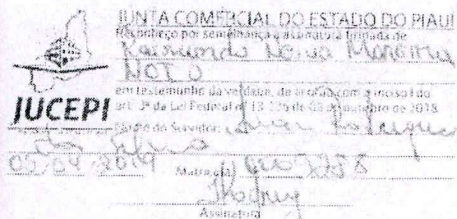 JUNTA COMERCIAL DO ESTADO DO PIAUI
Reconheço por semelhança a assinatura firmada de
Raimundo Neiva Moreira
Neto
em testemunho da verdade, de acordo com o inciso I do
art. 3º da Lei Federal nº 13.726 de 08 de outubro de 2018.
JUCEPI
Nome do Servidor: Rodrigues
da Silva
05 04 2019 Matrícula:
Assinatura